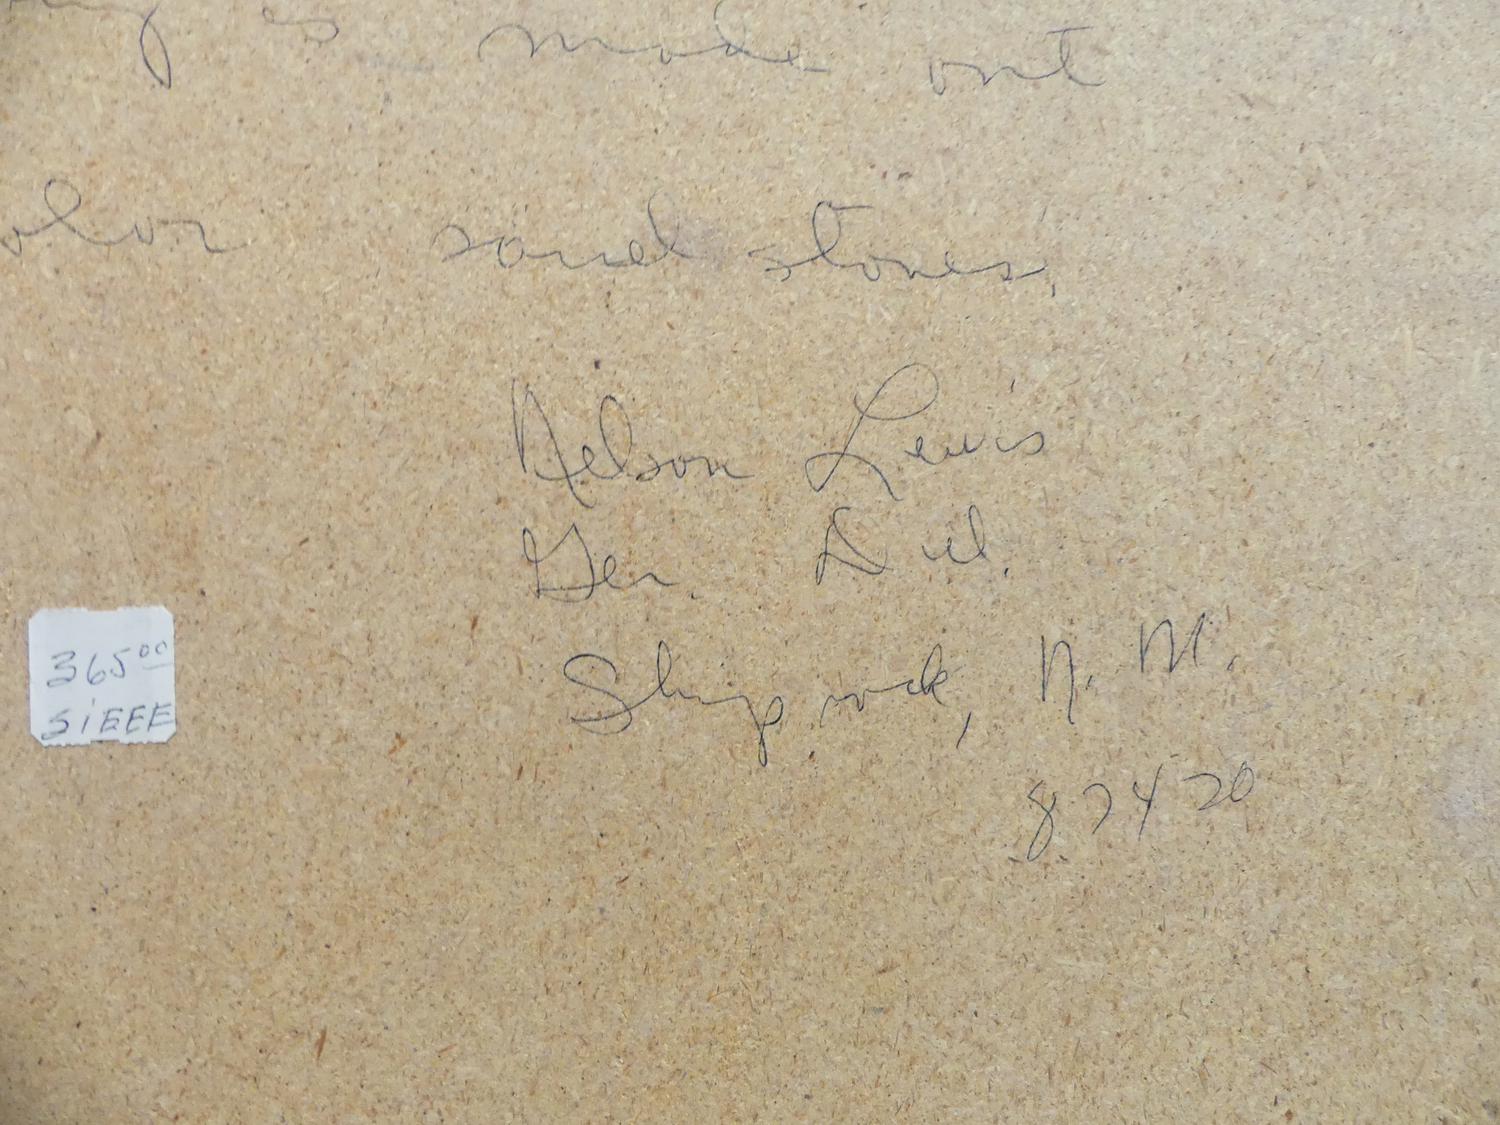 is made out
olor sand stones,
Nelson Lewis
Gen. Del.
Shiprock, N. M.
87420
365.00
SiEEE